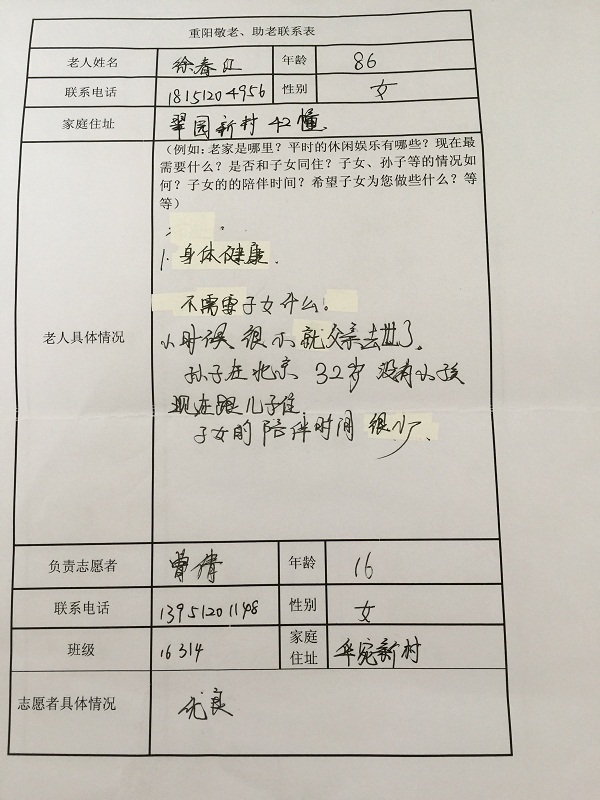 重阳敬老、助老联系表
老人姓名 徐春红 年龄 86
联系电话 18151204956 性别 女
家庭住址 翠园新村42幢
(例如:老家是哪里?平时的休闲娱乐有哪些?现在最
需要什么?是否和子女同住?子女、孙子等的情况如
何?子女的的陪伴时间?希望子女为您做些什么?等
等)
1. 身体健康.
不需要子女什么。
小时候 很小就父亲去世了。
老人具体情况
孙子在北京 32岁 没有小孩
现在跟儿子住.
子女的陪伴时间 很少.
负责志愿者 曹倩 年龄 16
联系电话 13951201198 性别 女
班级 16314 家庭
住址 华宛新村
志愿者具体情况 优良